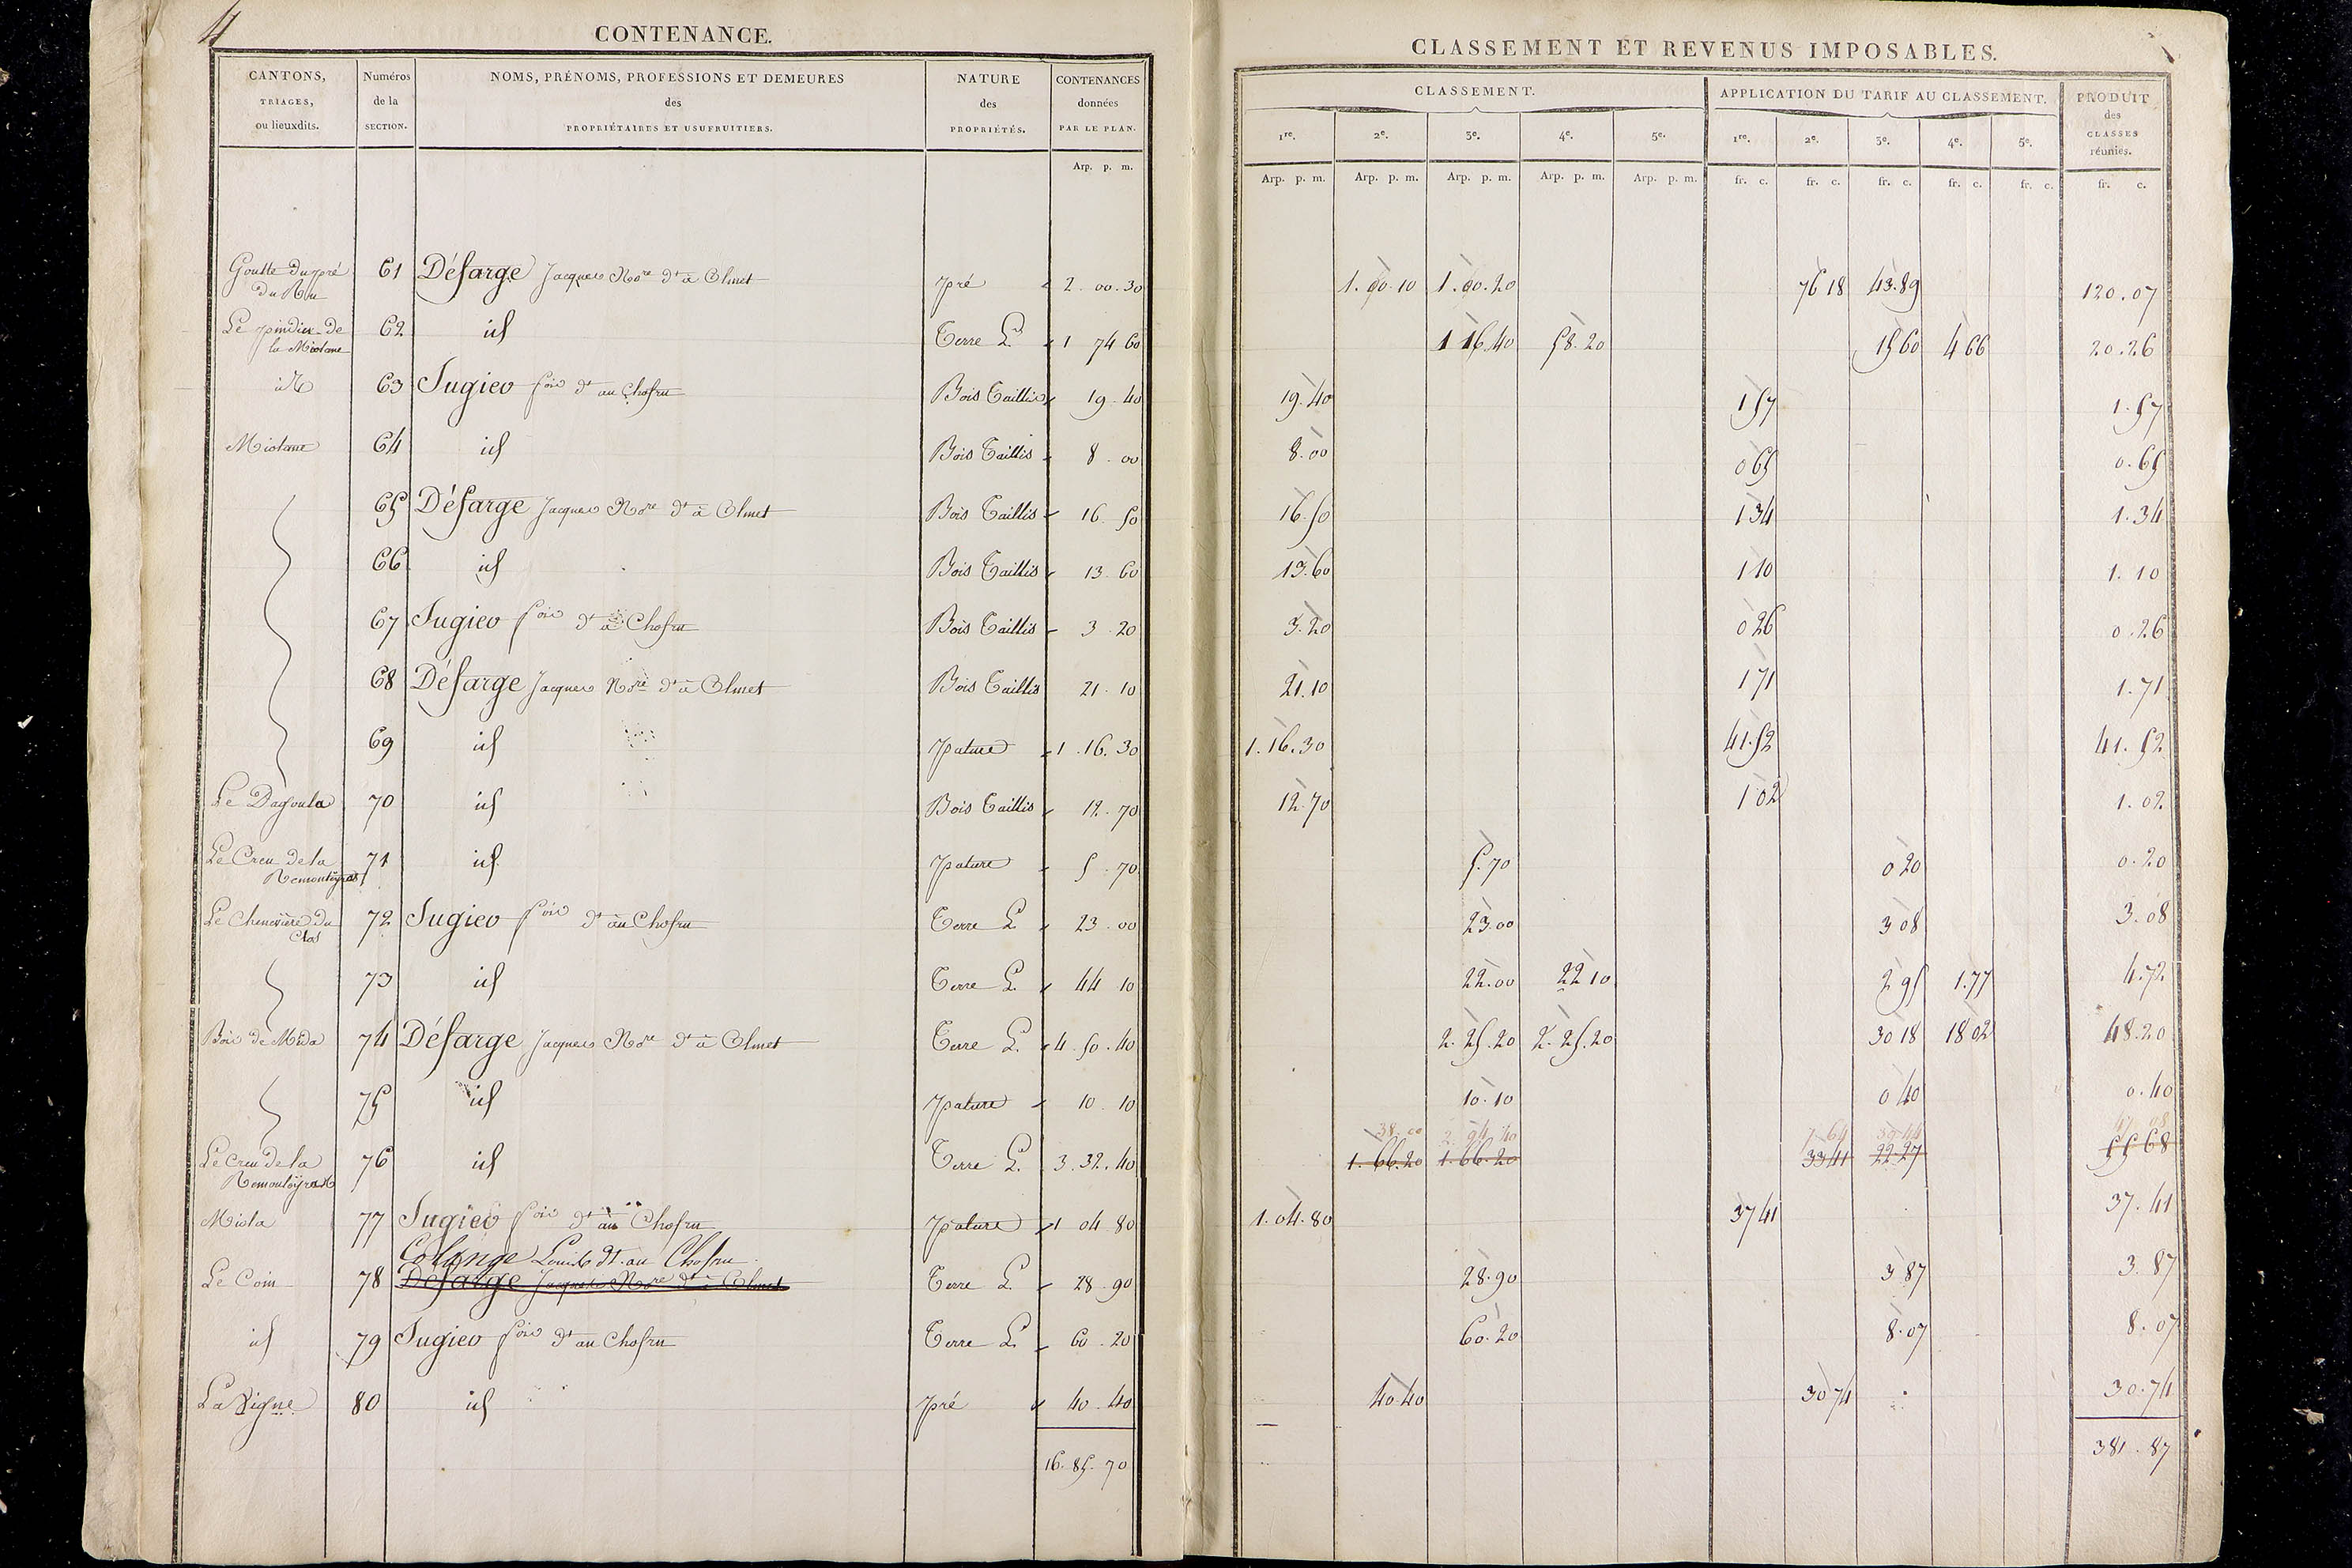 4
CONTENANCE.
CLASSEMENT ET REVENUS IMPOSABLES.
CANTONS, TRIAGES, ou lieuxdits.
Numéros de la SECTION.
NOMS, PRÉNOMS, PROFESSIONS ET DEMEURES des PROPRIÉTAIRES ET USUFRUITIERS.
NATURE des PROPRIÉTÉS.
CONTENANCES données PAR LE PLAN.
CLASSEMENT.
APPLICATION DU TARIF AU CLASSEMENT.
PRODUIT des CLASSES réunies.
1re. 2e. 3e. 4e. 5e. 1re. 2e. 3e. 4e. 5e.
Arp. p. m. Arp. p. m. Arp. p. m. Arp. p. m. Arp. p. m. Arp. p. m. fr. c. fr. c. fr. c. fr. c. fr. c. fr. c.
Goutte du pré du Riu 61 Défarge Jacques Nore dt à Olmet pré 2. 00. 30 1. 00. 10 1. 00. 20 76 18 43. 89 120. 07
Le de la Miolane 62 id Terre L. 1 74 60 1 16. 40 58. 20 15 60 4 66 20. 26
id 63 Sugieo fois dt au Chofru Bois Taillis 19. 40 19. 40 1 57 1. 57
Miolane 64 id Bois Taillis 8. 00 8. 00 0 65 0. 65
65 Défarge Jacques Nore dt à Olmet Bois Taillis 16. 50 16. 50 1 34 1. 34
66 id Bois Taillis 13. 60 13. 60 1 10 1. 10
67 Sugieo fois dt à Chofru Bois Taillis 3. 20 3. 20 0 26 0. 26
68 Défarge Jacques Nore dt à Olmet Bois Taillis 21. 10 21. 10 1 71 1. 71
69 id pature 1. 16. 30 1. 16. 30 41. 52 41. 52
Le 70 id Bois Taillis 12. 70 12. 70 1 02 1. 02
Le Creu de la 71 id pature 5. 70 5. 70 0 20 0. 20
Le Chenevière du Clos 72 Sugieo fois dt au Chofru Terre L. 23. 00 23. 00 3 08 3. 08
73 id Terre L. 44 10 22. 00 22 10 2 95 1. 77 4. 72
Bois de Mida 74 Défarge Jacques Nore dt à Olmet Terre L. 4. 50. 40 2. 25. 20 2. 25. 20 30 18 18 02 48. 20
75 id pature 10 10 10. 10 0 40 0. 40
38. 00 2. 94 40 7 64 39 44 47 08
Le Creu de la 76 id Terre L. 3. 32. 40 1. 66. 20 1. 66. 20 33 41 22 27 55 68
Miola 77 Sugieo fois dt au Chofru pature 1 04 80 1. 04. 80 37 41 37. 41
Colange Louis dt. au Chofru
Le Coin 78 Défarge Jacques Nore dt à Olmet Terre L. 28. 90 28. 90 3 87 3. 87
id 79 Sugieo fois dt au Chofru Terre L. 60. 20 60. 20 8. 07 8. 07
La Vigne 80 id pré 40. 40 40 40 30 74 30. 74
16. 85. 70 381. 87